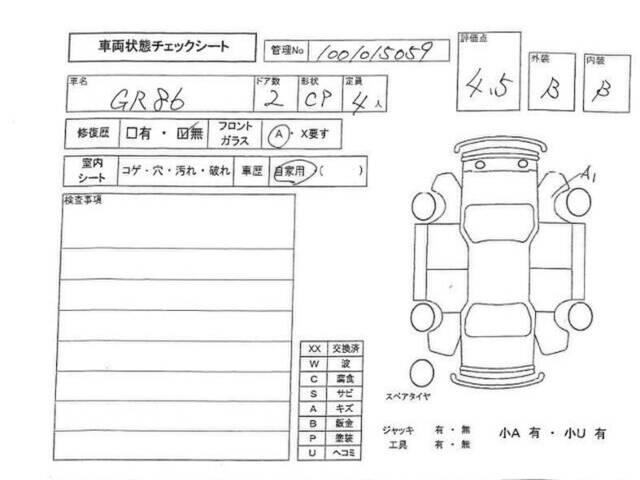 車両状態チェックシート
管理No 1001015059
評価点 4.5
外装 B
内装 B
車名 GR86
ドア数 2
形状 CP
定員 4人
修復歴 □有・☑無
フロントガラス A・X要す
室内シート コゲ・穴・汚れ・破れ
車歴 自家用・( )
検査事項
A1
XX 交換済
W 波
C 腐食
S サビ
A キズ
B 鈑金
P 塗装
U ヘコミ
スペアタイヤ
ジャッキ 有・無
工具 有・無
小A 有・小U 有